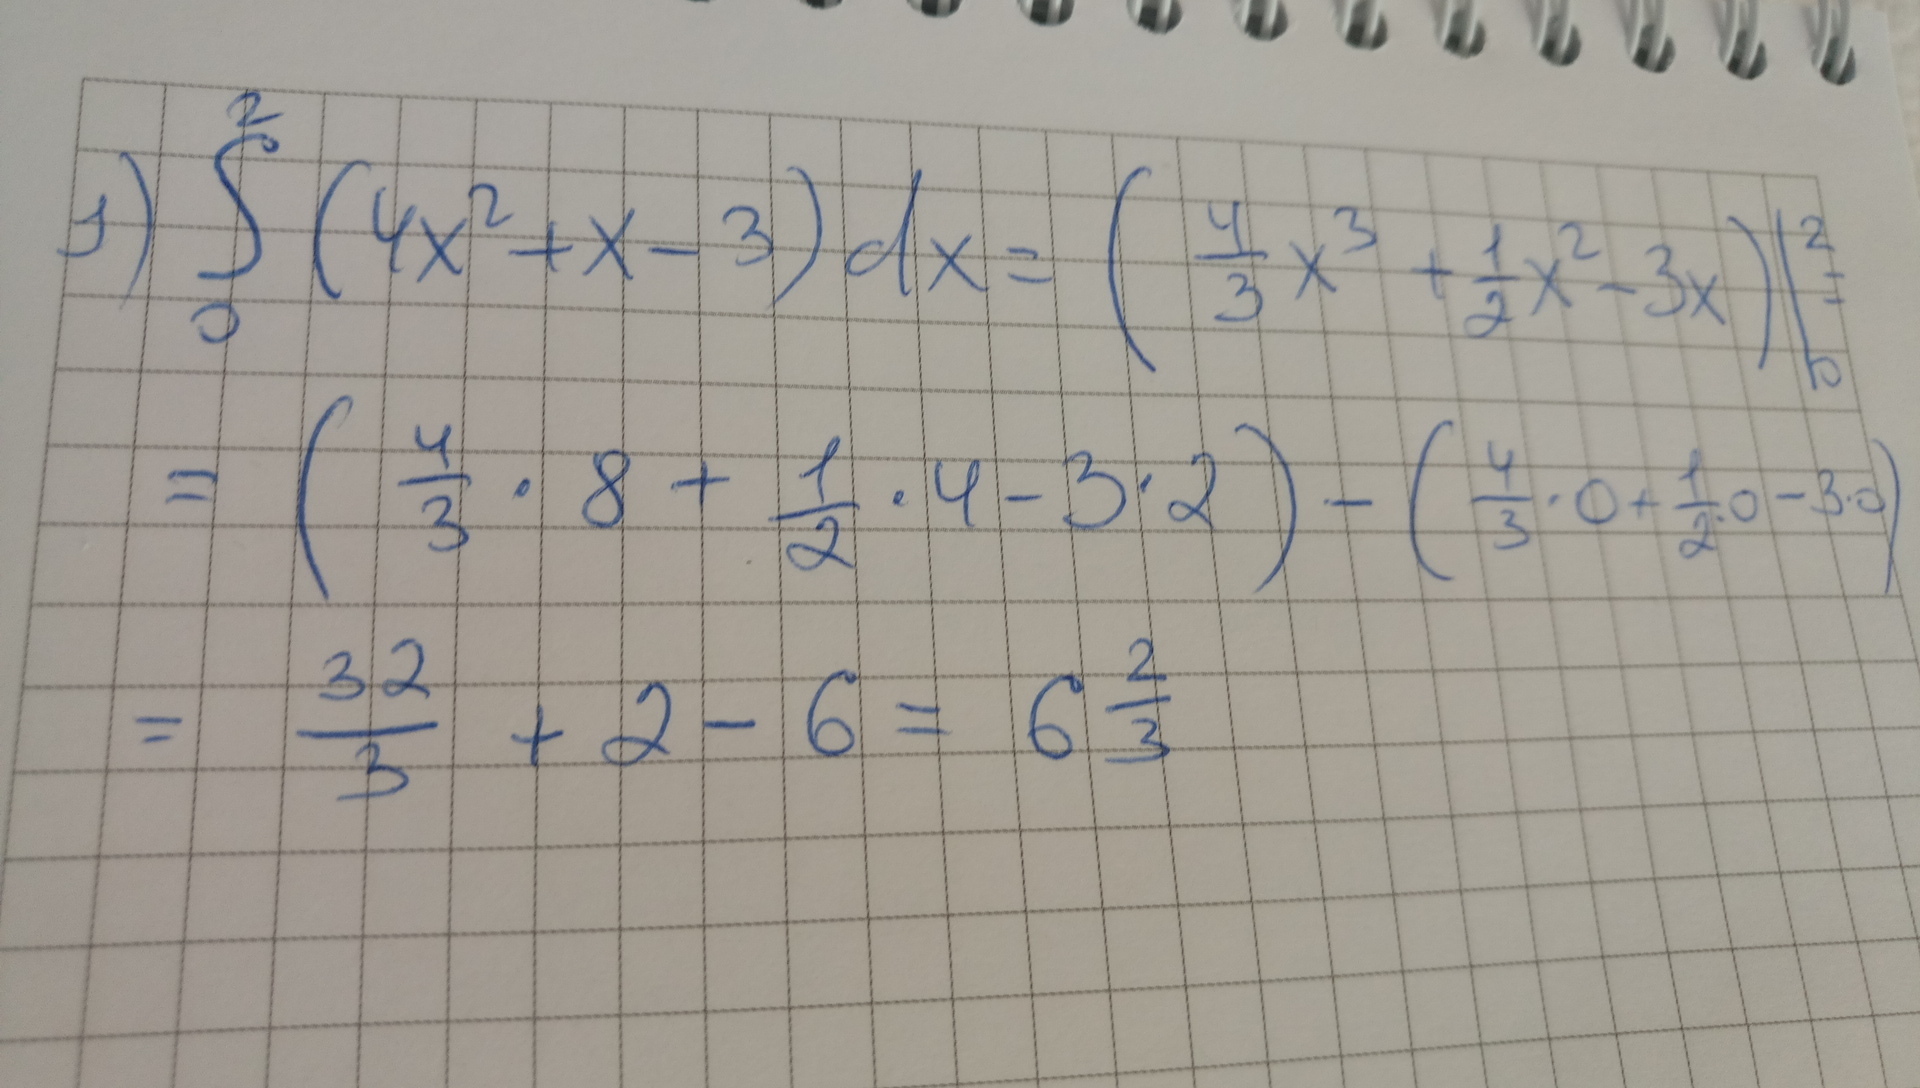 1) ∫₀² (4x² + x - 3) dx = (4/3 x³ + 1/2 x² - 3x) |₀² =
= (4/3 · 8 + 1/2 · 4 - 3 · 2) - (4/3 · 0 + 1/2 · 0 - 3 · 0)
= 32/3 + 2 - 6 = 6 2/3